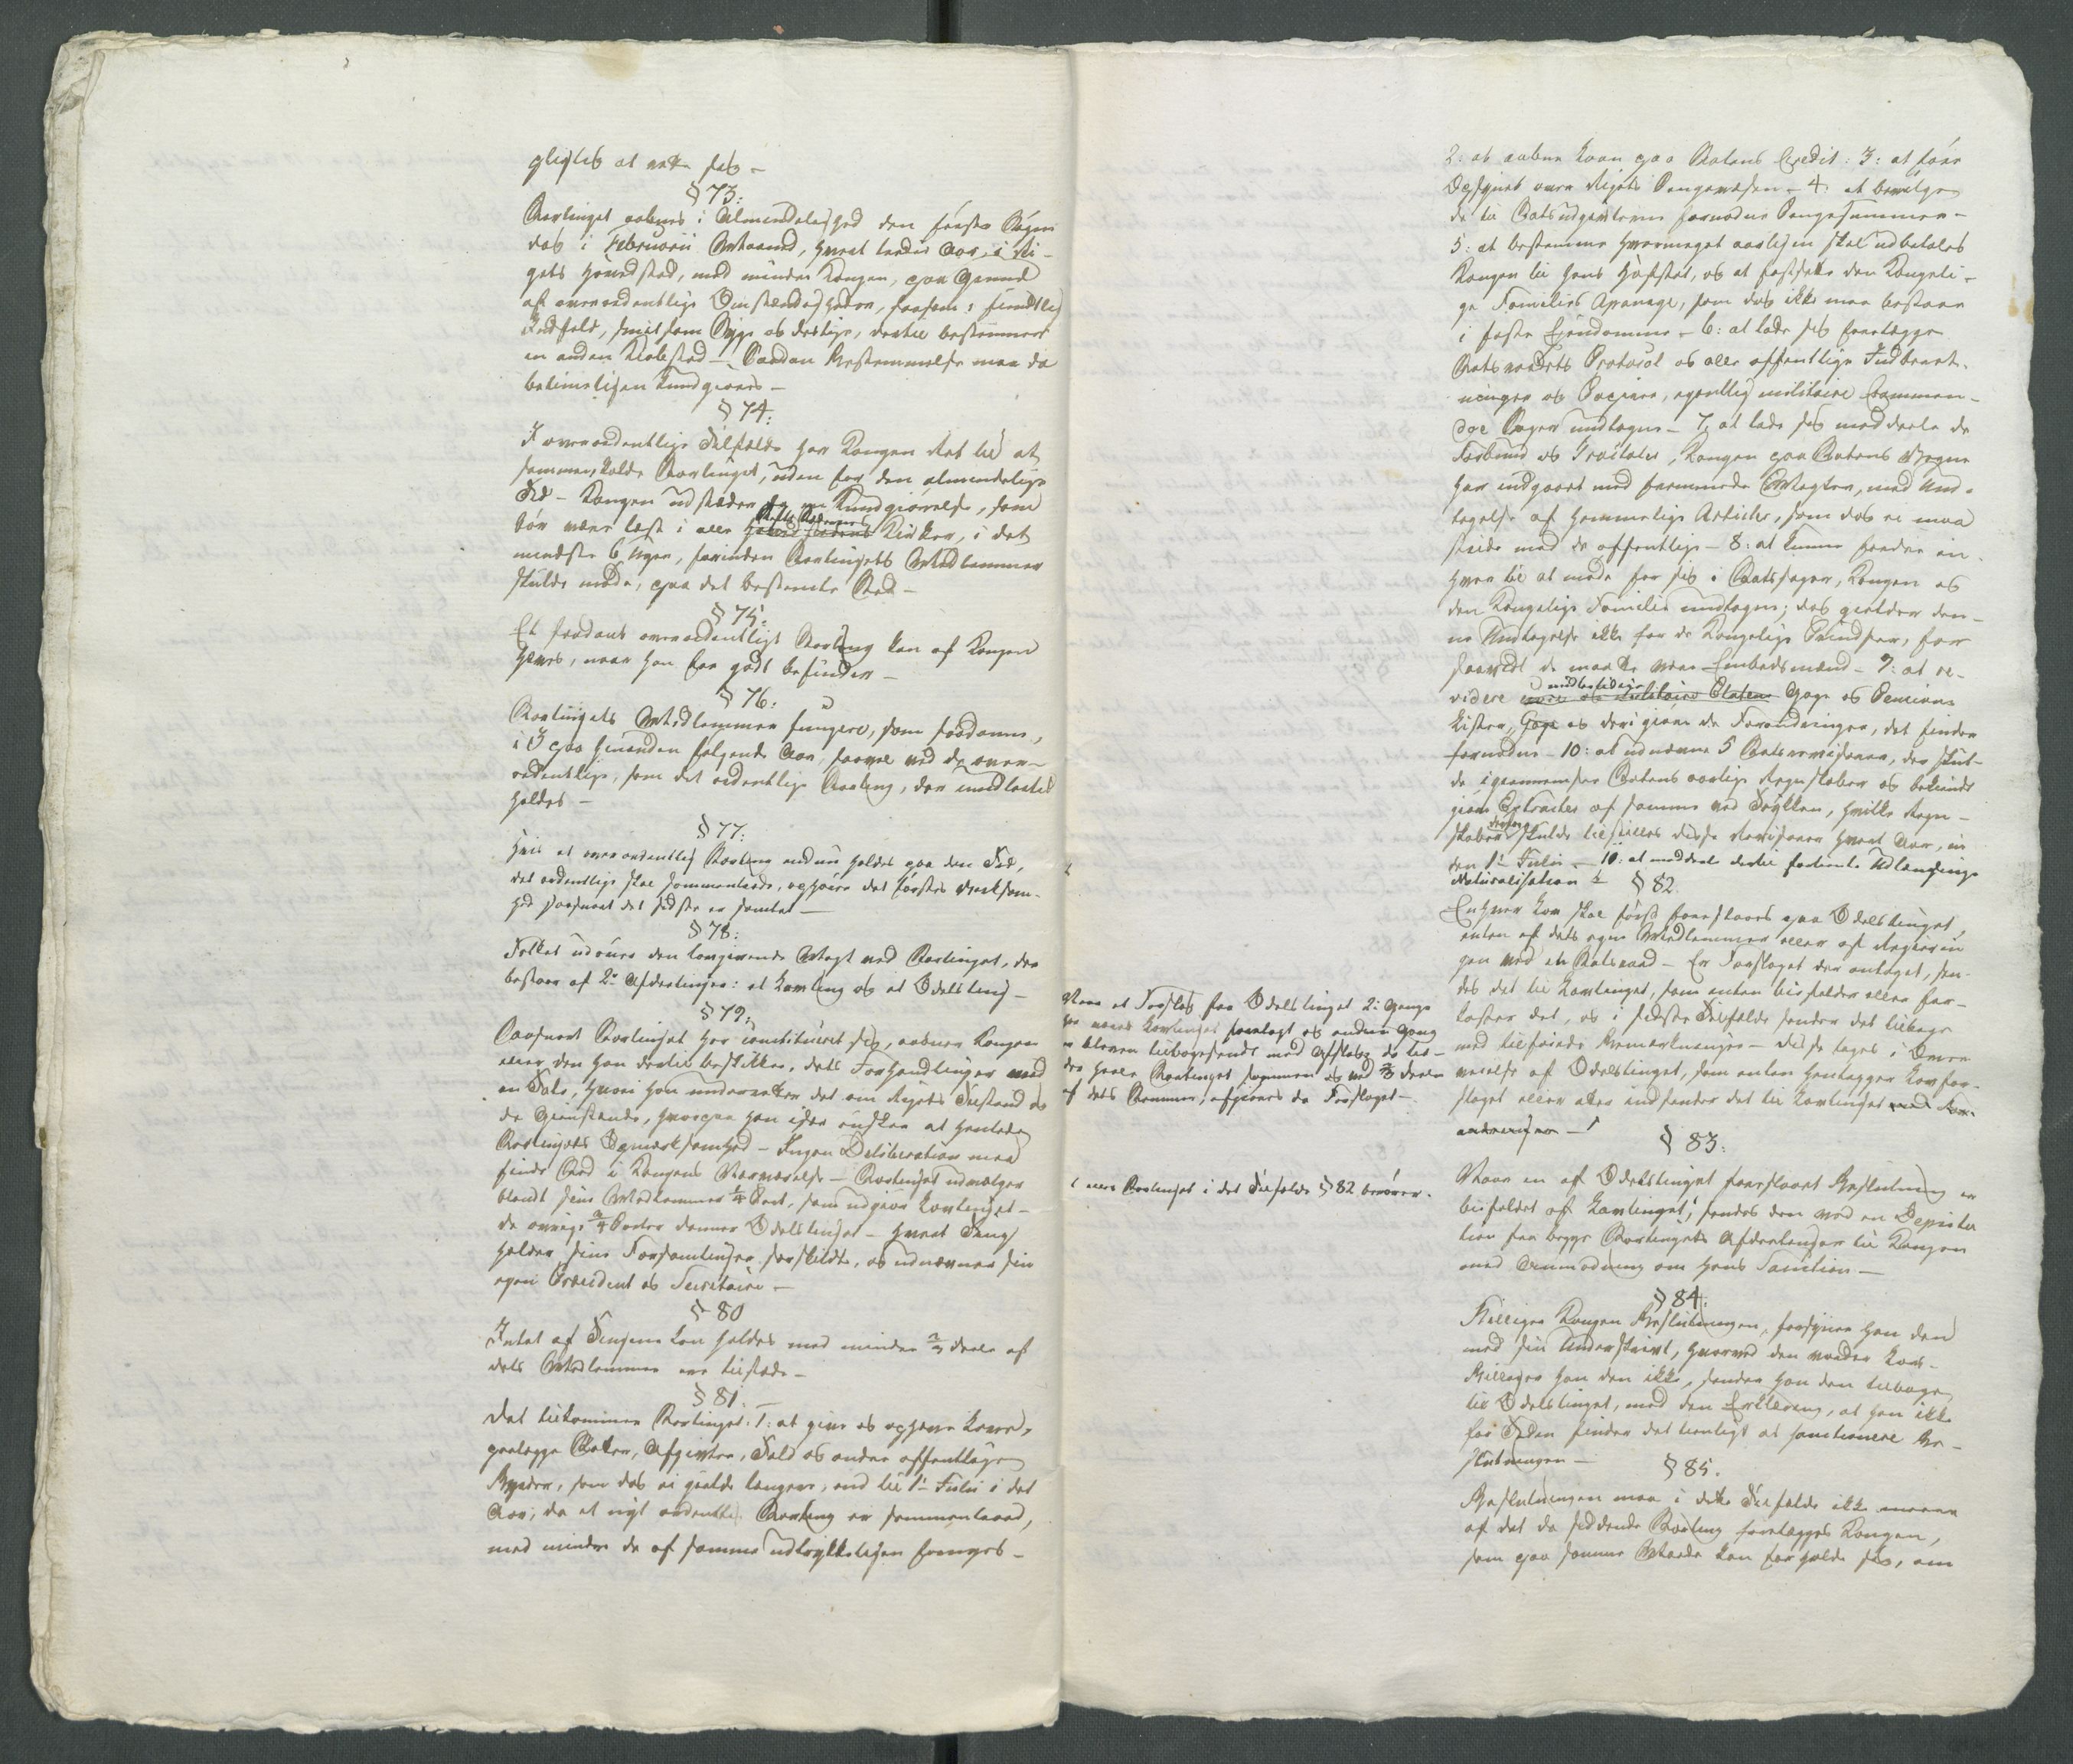 pligtes at møde sig –
§ 73:
Storthinget aabnes i Almindelighed den første Søgne
dag i Februarii Maaned, hvert tredie Aar, i Ri-
gets Hovedstad, med mindre Kongen, paa Grund
af overordentlige Omstændigheder, saasom: fiendtlig
Indfald, smitsom Syge og deslige, dertil bestemmer
en anden Kiøbsted – Saadan Bestemmelse maa da
betimeligen kundgiøres –
§ 74:
I overordentlige Tilfælde har Kongen Ret til at
sammenkalde Storthinget, uden for den almindelige
Tid – Kongen udstæder da en Kundgiørelse, som
bør være læst i alle
Stifts Stædernes
Kirker, i det
mindste 6 Uger, forinden Storthingets Medlemmer
skulde møde, paa det bestemte Sted –
§ 75:
Et saadant overordentligt Storting kan af Kongen
hæves, naar han for godt befinder –
§ 76:
Storthingets Medlemmer fungere, som saadanne,
i 3 paa hinanden følgende Aar, saavel ved de over-
ordentlige, som det ordentlige Storting, der imidlertid
holdes –
§ 77:
Hvis et overordentlig Storting endnu holdes paa den Tid,
det ordentlige skal sammentræde, ophører det førstes Virksom-
hed saasnart det sidste er samlet –
§ 78:
Folket udøver den lovgivende Magt ved Stortinget, der
bestaar af 2de Afdelinger: et Lavting og et Odelsting –
§ 79:
Saasnart Stortinget har constitueret sig, aabner Kongen
eller den han dertil beskikker, dets Forhandlinger med
en Tale, hvori han underretter det om Rigets Tilstand og
de Gienstande, hvorpaa han især ønsker at henlede
Stortingets Opmærksomhed – Ingen Deliberation maa
finde Sted i Kongens Nærværelse – Stortinget udvælger
blandt sine Medlemmer ¼ Part, som udgiør Lavtinget –
de øvrige ¾ Parter danner Odelstinget – Hvert Ting
holder sine Forsamlinger særskildt, og udnævner sin
egen Præsident og Secretaire –
§ 80
Intet af Tingene kan holdes med mindre ⅔ Deele af
dets Medlemmer ere tilstæde –
§ 81:
Det tilkommer Stortinget: 1: at give og ophæve Love,
paalægge Skatter, Afgivter, Told og andre offentlige
Byrder, som dog ei gielde længere, end til 1te Julii i det
Aar, da et nyt ordentlig Storting er sammentraad,
med mindre de af samme udtrykkeligen fornyes –
2: at aabne Laan paa Statens Credit: 3: at føre
Opsynet over Rigets Pengevæsen – 4: at bevilge
de til Statsudgivterne fornødne Pengesummer –
5: at bestemme hvormeget aarligen skal udbetales
Kongen til hans Hofstat, og at fastsætte den Kongeli-
ge Families Apanage, som dog ikke maa bestaae
i faste Eiendomme – 6: at lade sig forelægge
Statsraadets Protocol og alle offentlige Indberet-
ninger og Papirer, egentlig militaire Comman-
do Sager undtagne – 7: at lade sig meddeele de
Forbund og Tractater, Kongen paa Statens Vegne
har indgaaet med fremmede Magter, med Und-
tagelse af hemmelige Articler, som dog ei maa
stride mod de offentlige – 8: at kunne fordre en-
hver til at møde for sig i Statssager, Kongen og
den Kongelige Familie undtagen; dog gielder den-
ne Undtagelse ikke for de Kongelige Prindser, for
saavidt de maatte være Embedsmænd – 9: at re-
midlertidige
videre civile og militaire Etaters Gage og Pensions
Lister, Gage og deri giøre de Forandringer, det finder
fornødne – 10: at udnævne 5 Statsrevisorer, der skul-
de igiennemsee Statens aarlige Regnskaber og bekiendt-
giøre Extracter af samme ved Trykken, hvilke Regn-
skaber
derfor
skulde tilstilles disse Revisorer hvert Aar, in-
den 1te Julii – 10: at meddele dertil fortiente Udlændinge
Naturalisation
§ 82.
Enhver Lov skal først foreslaaes paa Odelstinget,
enten af dets egne Medlemmer eller af Regierin-
gen ved en Statsraad – Er Forslaget der antaget, sen-
des det til Lavtinget, som enten bifalder eller for-
kaster det, og i sidste Tilfælde sender det tilbage
med tilføiede Bemærkninger – Disse tages i Over-
veielse af Odelstinget, som enten henlægger Lovfor-
slaget eller atter indsender det til Lavtinget med For-
andringer –
Naar et Forslag fra Odelstinget 2de Gange
har været Lavtinget forelagt og anden Gang
er bleven tilbagesendt med Afslag, da træ-
der heele Stortinget sammen og ved ⅔ Deele
af dets Stemmer, afgiøres da Forslaget –
§ 83:
Naar en af Odelstinget foreslaaet Beslutning er
bifaldet af Lavtinget,
eller Stortinget i det Tilfælde § 82 berører.
sendes den ved en Deputa
tion fra begge Stortingets Afdeelinger til Kongen
med Anmodning om hans Sanction –
§ 84:
Billiger Kongen Beslutningen, forsyner han den
med sin Underskrivt, hvorved den vorder Lov –
Billiger han den ikke, sender han den tilbage
til Odelstinget, med den Erklæring, at han ikke
for Tiden finder det tienligt at sanctionere Be-
slutningen –
§ 85.
Beslutningen maa i dette Tilfælde ikke meere
af det da siddende Storting forelægges Kongen,
som paa samme Maade kan forholde sig, om